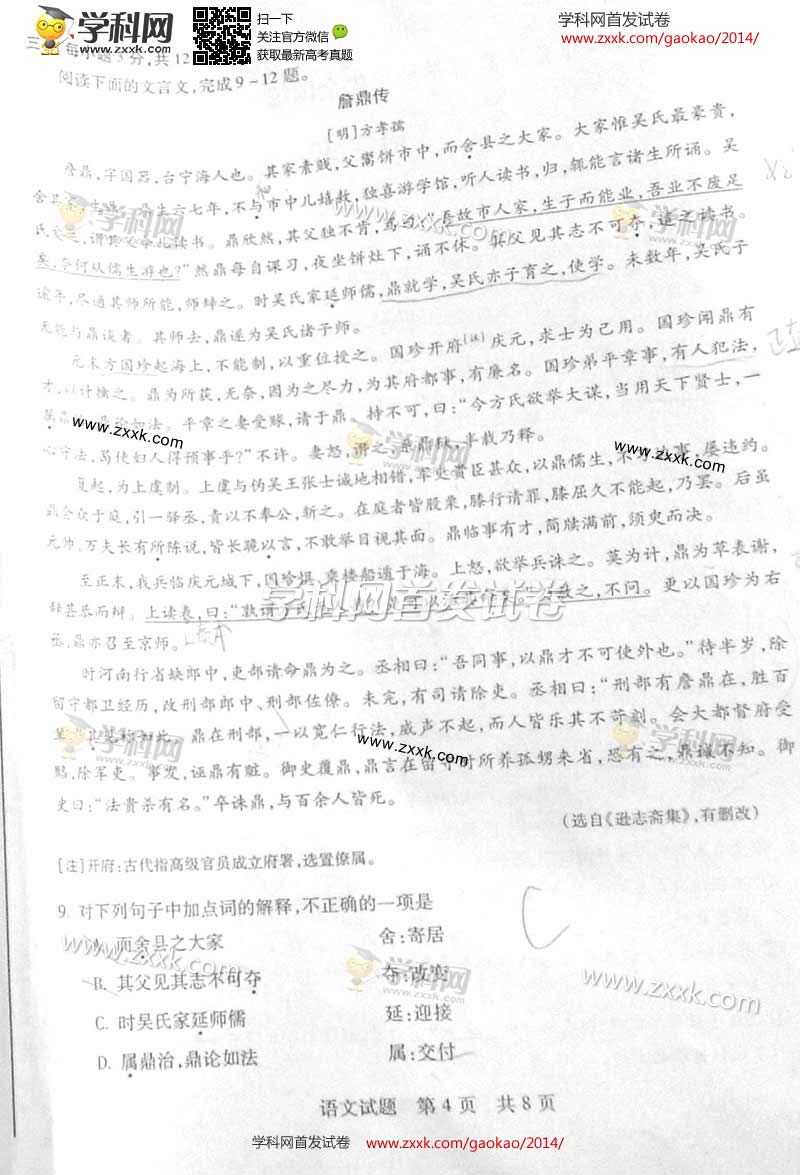 学科网
www.zxxk.com
扫一下
关注官方微信
获取最新高考真题
学科网首发试卷
www.zxxk.com/gaokao/2014/
三 每小题3分,共12
阅读下面的文言文,完成9~12题。
詹鼎传
[明]方孝孺
詹鼎,字国器,台宁海人也。其家素贱,父鬻饼市中,而舍县之大家。大家惟吴氏最豪贵,
舍其 生 鼎生六七年,不与市中儿嬉敖,独喜游学馆,听人读书,归,辄能言诸生所诵。吴
氏 谓其父令儿读书。鼎欣然,其父独不肯,骂曰:“吾故市人家,生子而能业,吾业不废足
矣,奈何从儒生游也?”然鼎每自课习,夜坐饼灶下,诵不休。其父见其志不可夺,遣之读书。
逾年,尽通其师所能,师辞之。时吴氏家延师儒,鼎就学,吴氏亦子育之,使学。未数年,吴氏子
无能与鼎谈者。其师去,鼎遂为吴氏诸子师。
元末方国珍起海上,不能制,以重位授之。国珍开府[注]庆元,求士为己用。国珍闻鼎有
才,以计擒之。鼎为所获,无奈,因为之尽力,为其府都事,有廉名。国珍弟平章事,有人犯法,
属鼎 鼎论如法。平章之妻受赇,请于鼎,持不可,曰:“今方氏欲举大谋,当用天下贤士,一
心守法,曷使妇人得预事乎?”不许。妻怒,谮之,系鼎狱,半载乃释。
复起,为上虞制。上虞与伪吴王张士诚地相错,军吏贵臣甚众,以鼎儒生,不 事,屡违约。
鼎会众于庭,引一驿丞,责以不奉公,斩之。在庭者皆股栗,膝行请罪,膝屈久不能起,乃罢。后虽
元帅、万夫长有所陈说,皆长跪以言,不敢举目视其面。鼎临事有才,简牍满前,须臾而决。
至正末,我兵临庆元城下,国珍惧,乘楼船遁于海。上怒,欲举兵诛之。莫为计,鼎为草表谢,
辞甚恭而辩。上读表,曰:“孰谓方氏 赦之,不问。更以国珍为右
丞,鼎亦召至京师。
时河南行省缺郎中,吏部请命鼎为之。丞相曰:“吾同事,以鼎才不可使外也。”待半岁,除
留守都卫经历,改刑部郎中、刑部佐僚。未完,有司请除吏。丞相曰:“刑部有詹鼎在,胜百
吏 其见称如此。鼎在刑部,一以宽仁行法,威声不起,而人皆乐其不苛刻。会大都督府受
赂,除军吏。事发,诬鼎有赃。御史覆鼎,鼎言在留守时所养孤甥来省,恐有之,鼎诚不知。御
史曰:“法贵杀有名。”卒诛鼎,与百余人皆死。
(选自《逊志斋集》,有删改)
[注]开府:古代指高级官员成立府署,选置僚属。
9. 对下列句子中加点词的解释,不正确的一项是
A. 而舍县之大家 舍:寄居
B. 其父见其志不可夺 夺:改变
C. 时吴氏家延师儒 延:迎接
D. 属鼎治,鼎论如法 属:交付
C
语文试题 第4页 共8页
学科网首发试卷 www.zxxk.com/gaokao/2014/